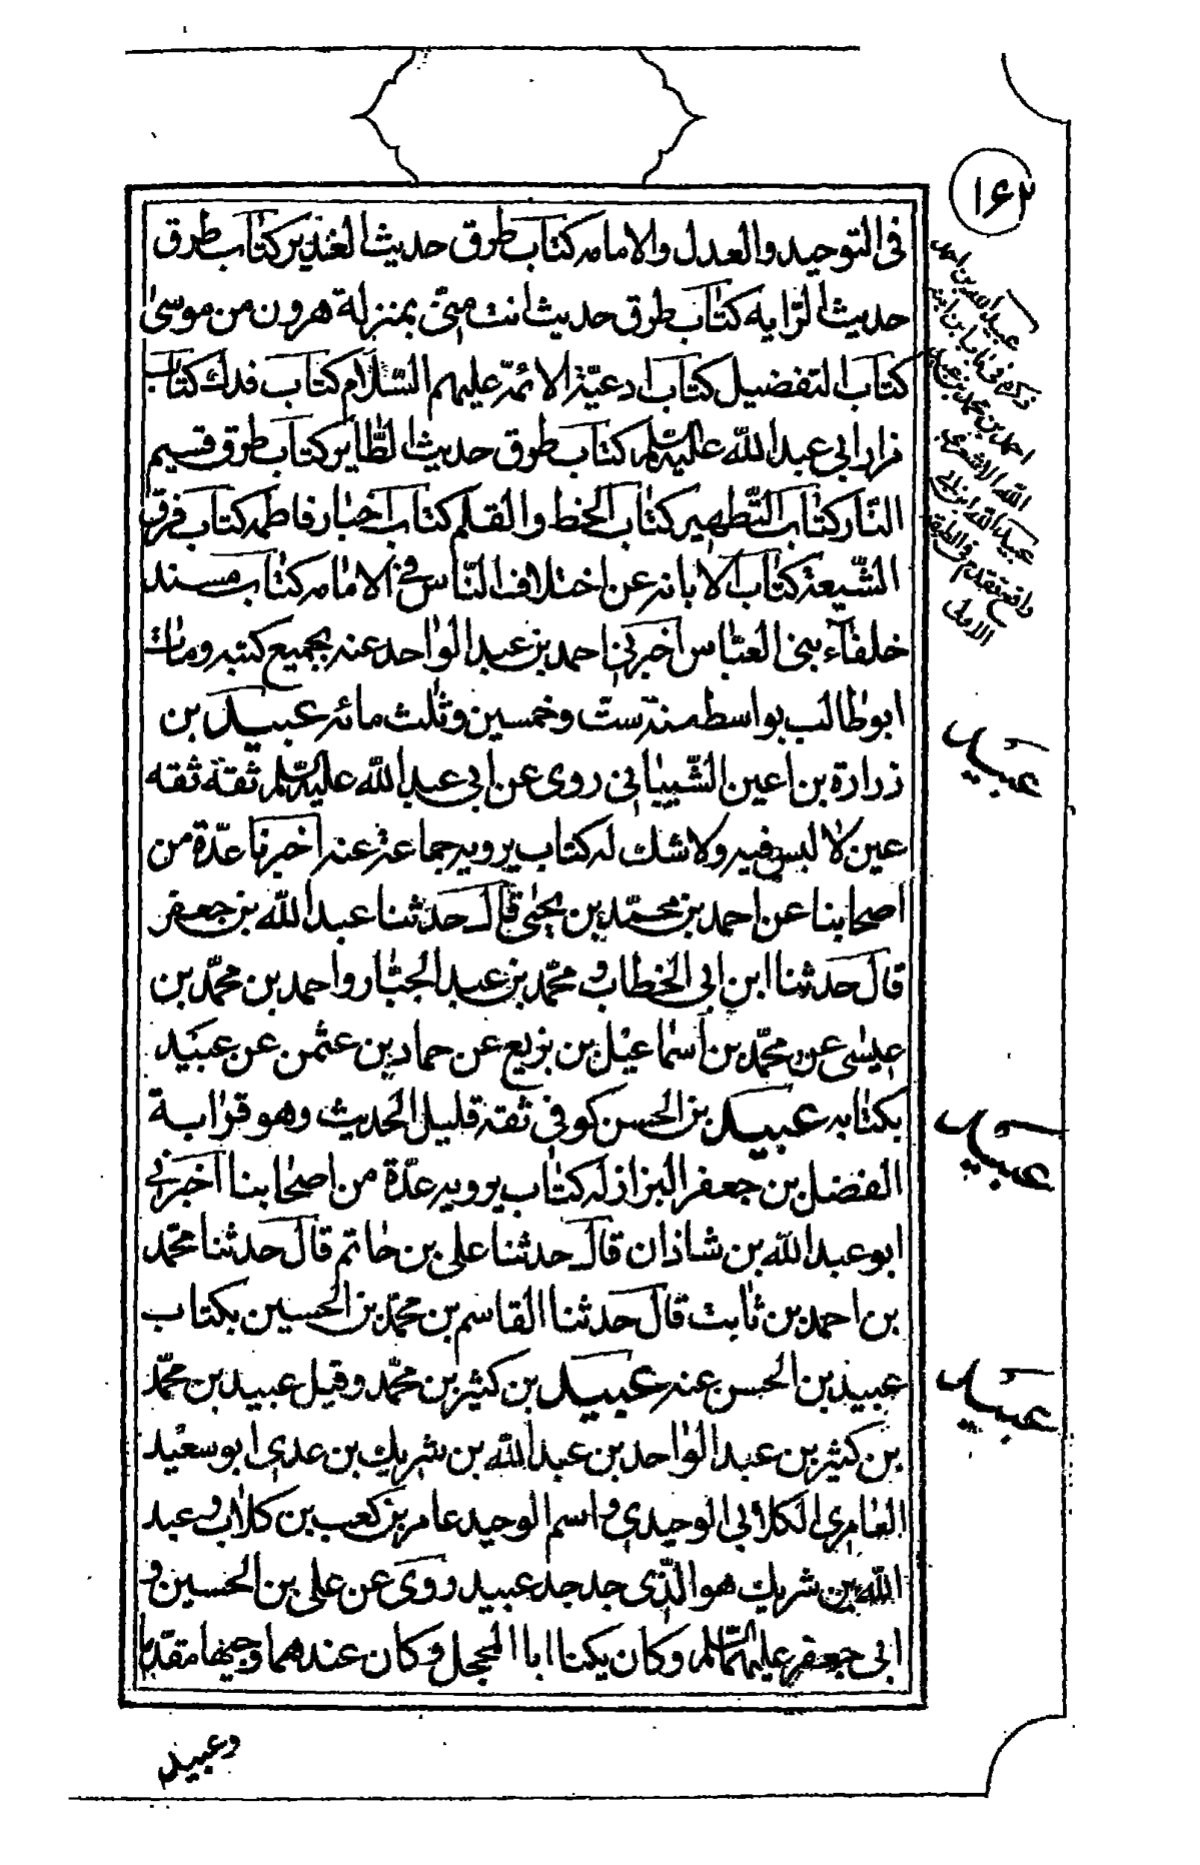 ١۶٢
فى التوحيد والعدل والامامه كتاب طرق حديث الغدير كتاب طرق
حديث الرّايه كتاب طرق حديث انت منّى بمنزلة هرون من موسى
كتاب التفضيل كتاب ادعيّة الائمّة عليهم السّلام كتاب فدك كتاب
زار ابى عبد الله عليه السلم كتاب طرق حديث الطّاير كتاب طرق قسيم
النّار كتاب التّطهير كتاب الخط والقلم كتاب اخبار فاطمه كتاب فرق
الشّيعة كتاب الابانه عن اختلاف النّاس فى الامامه كتاب مسند
خلفآء بنى العبّاس اخبرنى احمد بن عبد الواحد عنه بجميع كتبه ومات
ابوطالب بواسط سنة ست وخمسين وثلث مائه عبيد بن
زرارة بن اعين الشّيبانى روى عن ابى عبد الله عليه السلم ثقة ثقه
عين لا لبس فيه ولا شك له كتاب يرويه جماعة عنه اخبرنا عدّة من
اصحابنا عن احمد بن محمّد بن يحيى قال حدثنا عبد الله بن جعفر
قال حدثنا ابن ابى الخطاب و محمّد بن عبد الجبّار واحمد بن محمّد بن
عيسى عن محمّد بن اسماعيل بن بزيع عن حماد بن عثمن عن عبيد
بكتابه عبيد بن الحسن كوفى ثقة قليل الحديث وهو قرابة
الفضل بن جعفر البزاز له كتاب يرويه عدّة من اصحابنا اخبرنى
ابو عبد الله بن شاذان قال حدثنا على بن حاتم قال حدثنا محمّد
بن احمد بن ثابت قال حدثنا القاسم بن محمّد بن الحسين بكتاب
عبيد بن الحسن عنه عبيد بن كثير بن محمّد وقيل عبيد بن محمّد
بن كثير بن عبد الواحد بن عبد الله بن شريك بن عدى ابو سعيد
العامرى الكلابى الوحيدى واسم الوحيد عامر بن كعب بن كلاب وعبد
الله بن شريك هو الذّى جد جد عبيد روى عن على بن الحسين و
ابى جعفر عليهما السّلم وكان يكنا ابا المحجل وكان عندهما وجيها مقدّما
وعبيد
عبيد الله بن احمد
ذكره فى باب ابن ابنه
احمد بن محمد بن عبيد
الله الاشعرى
عبيد الله ابن ابى
رافع تقدم فى الطبقة
الاولى
عبيد
عبيد
عبيد